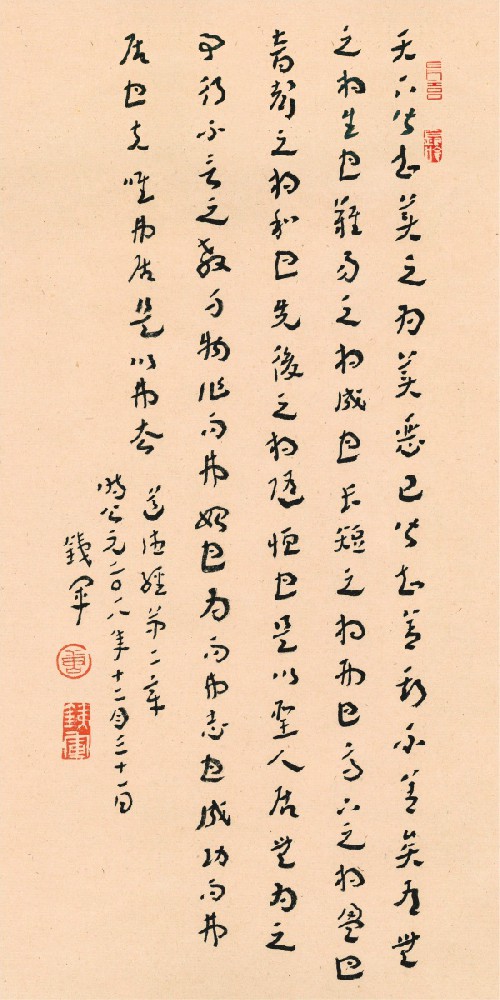 天下皆知美之为美惡已皆知善斯不善矣有無
之相生也難易之相成也長短之相刑也高下之相盈也
音聲之相和也先後之相隨恒也是以聖人居無为之
事行不言之教万物作而弗始也为而弗志也成功而弗
居也夫唯弗居是以弗去
道德經第二章
時公元二〇一八年十二月三十一日
錢軍
錢軍